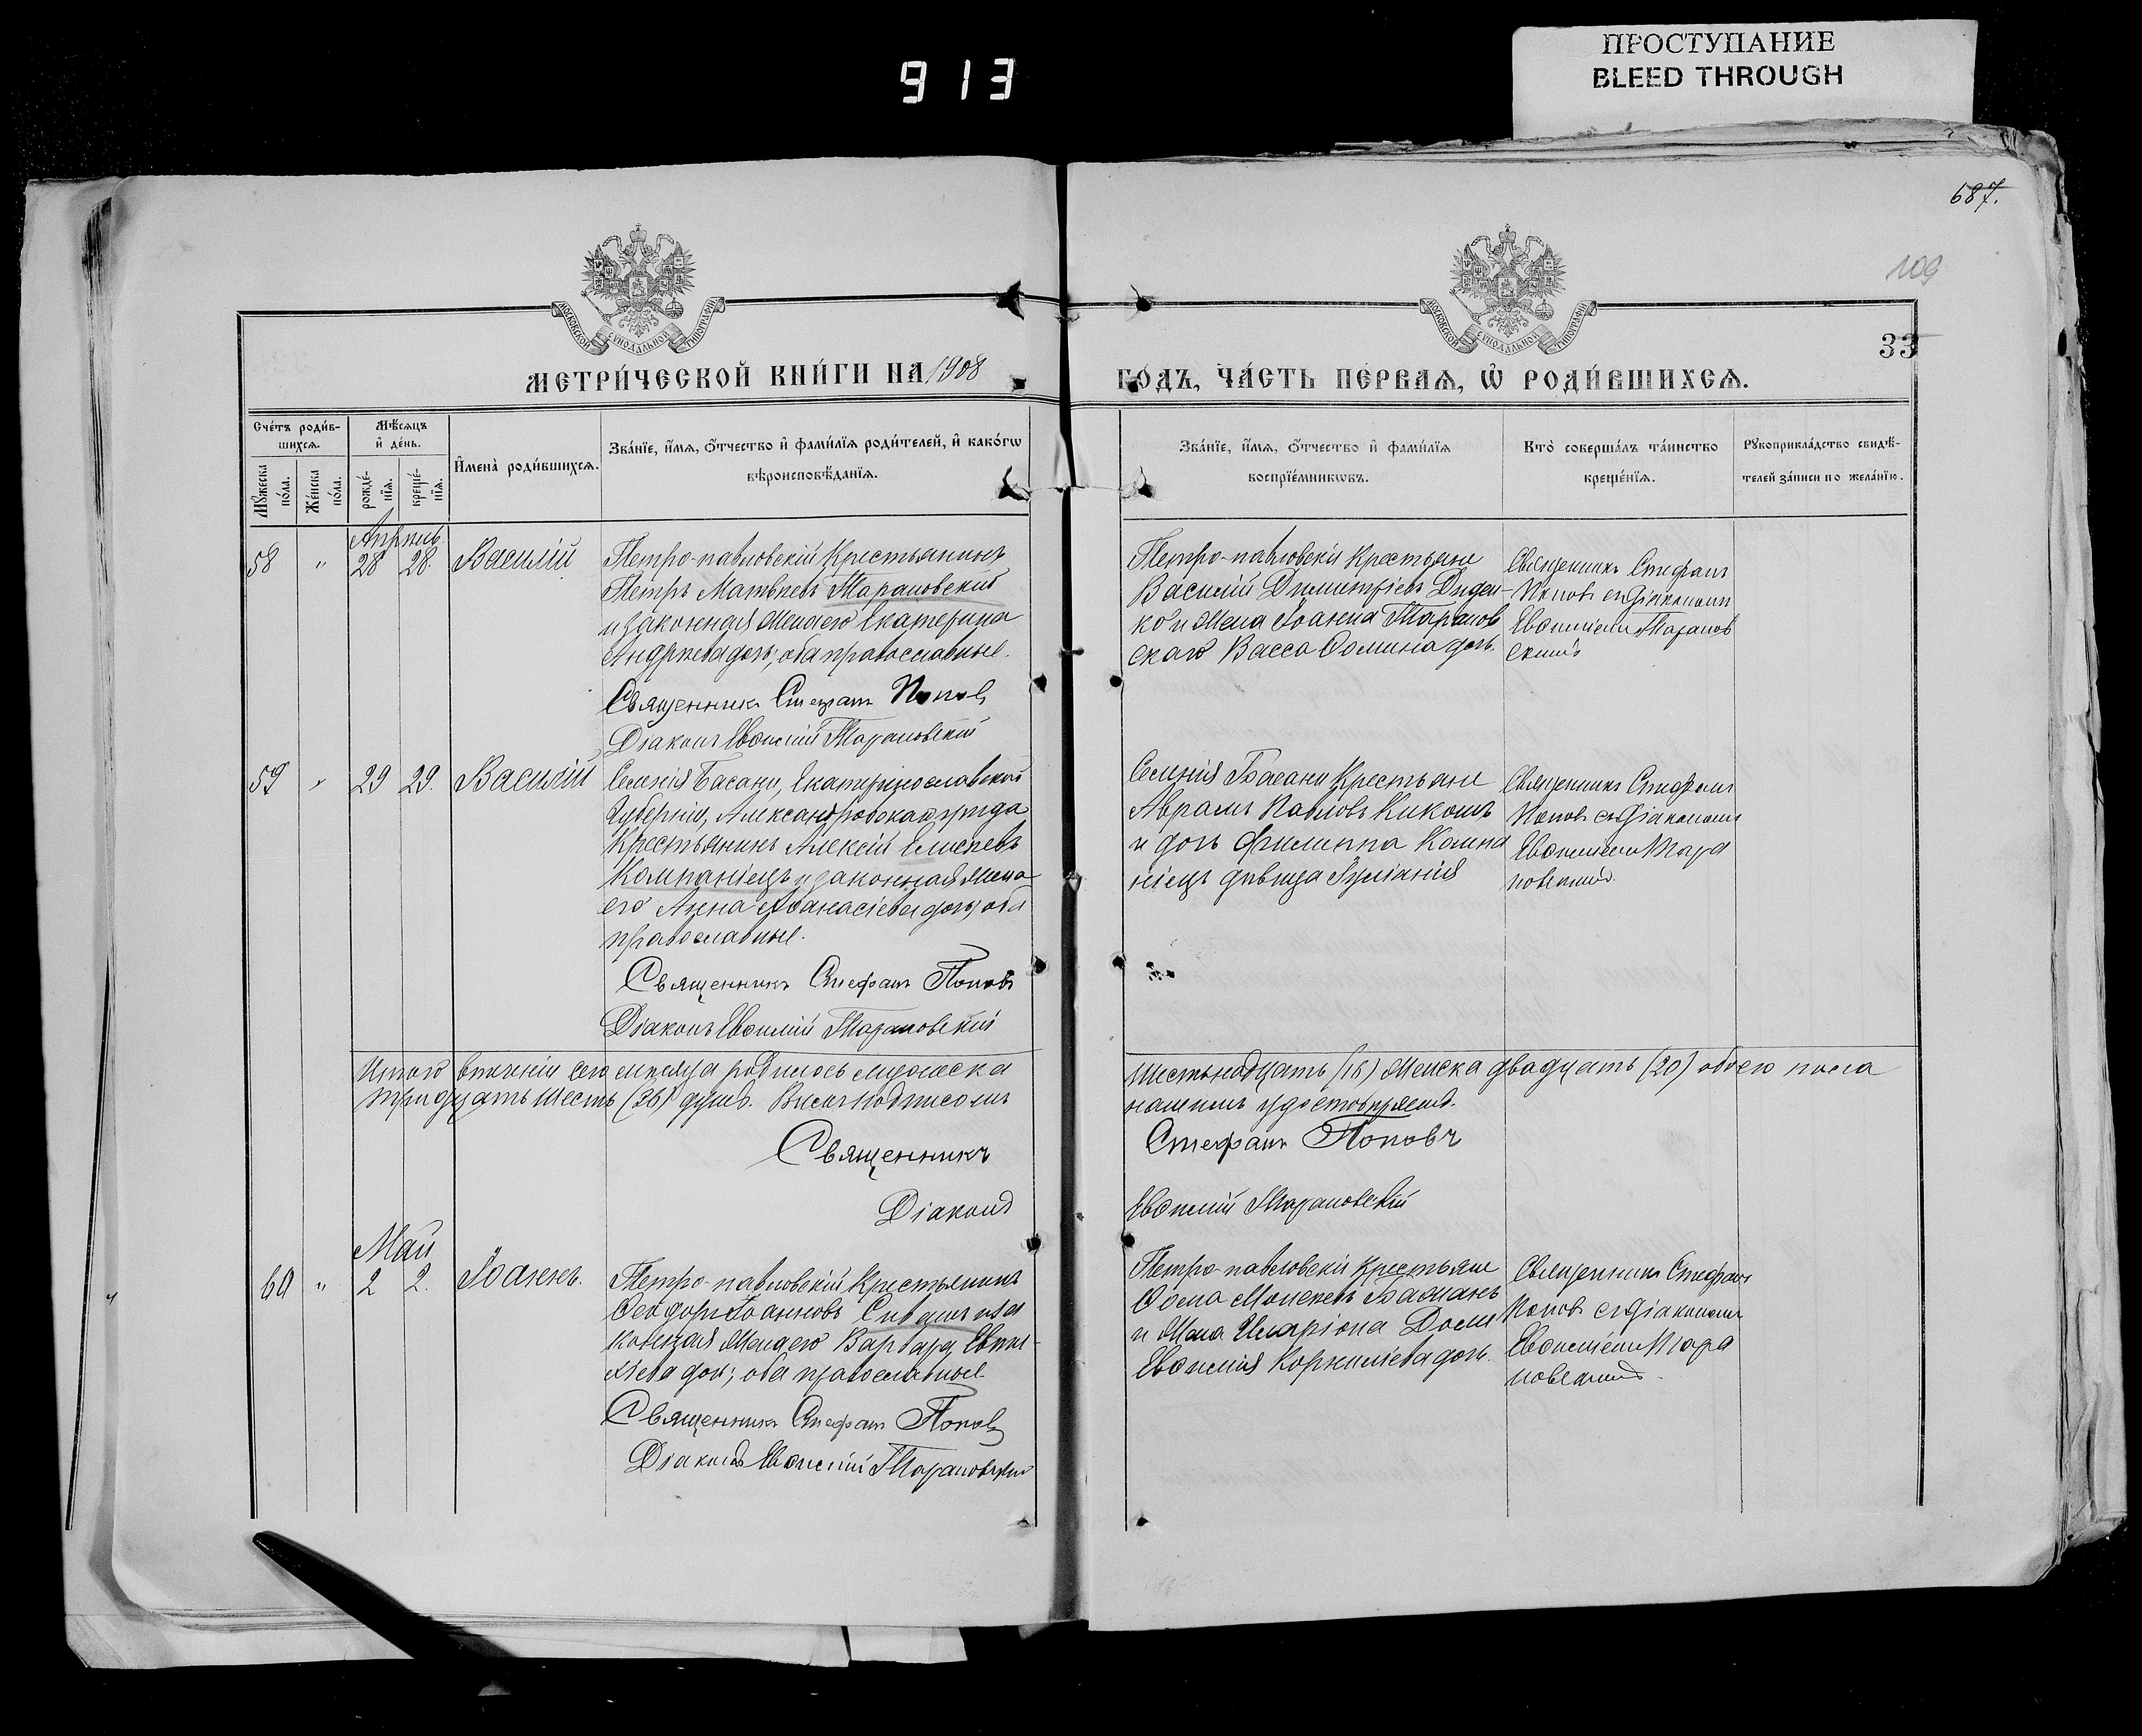 913
ПРОСТУПАНИЕ
BLEED THROUGH
687.
109
33
МОСКОВСКОЙ СѴНОДАЛЬНОЙ ТИПОГРАФІИ
МОСКОВСКОЙ СѴНОДАЛЬНОЙ ТИПОГРАФІИ
МЕТРИ́ЧЕСКОЙ КНИ́ГИ НА 1908
ГО́ДЪ, ЧА́СТЬ ПЕ́РВАѦ, Ѽ РОДИ́ВШИХСѦ.
Сче́тъ роди́в-
шихсѧ.
Мꙋ́жеска по́ла.
Же́нска по́ла.
Мѣ́сѧцъ
и҆ де́нь.
рожде́-
нїѧ.
креще́-
нїѧ.
И҆мена̀ роди́вшихсѧ.
Зва́нїе, и҆́мѧ, ѻ҆́тчество и҆ фами́лїѧ роди́телей, и҆ како́гѡ
вѣроисповѣ́данїѧ.
Зва́нїе, и҆́мѧ, ѻ҆́тчество и҆ фами́лїѧ
воспрїе́мникѡвъ.
Кто̀ соверша́лъ та́инство
креще́нїѧ.
Рꙋкоприкла́дство свидѣ́-
телей за́писи по жела́нїю.
Апрѣль
58 " 28 28. Василій
Петро-павловскій Крестьянинъ
Петръ Матвѣевъ Тарановскій
и законная жена его Екатерина
Андреева дочь; оба православные.
Священникъ Стефанъ Поповъ
Діаконъ Евѳимій Тарановскій
Петро-павловскіе Крестьяне
Василій Димитріевъ Диден-
ко и жена Іоанна Таранов
скаго Васса Ѳомина дочь.
Священникъ Стефанъ
Поповъ съ діакономъ
Евѳиміемъ Таранов
скимъ
59 " 29 29. Василій
Селенія Басани, Екатеринославской
Губерніи, Александровскаго уѣзда
Крестьянинъ Алексій Елисѣевъ
Компаніецъ и законная жена
его Анна Аѳанасіева дочь; оба
православные.
Священникъ Стефанъ Поповъ
Діаконъ Евѳимій Тарановскій
Селенія Басани Крестьяне
Аврамъ Павловъ
и дочь Филиппа Компа
ніецъ дѣвица Іуліанія
Священникъ Стефанъ
Поповъ съ діакономъ
Евѳиміемъ Тара
новскимъ.
Итого втеченіи сего мѣсяца родилось мужеска
тридцать шесть (36) душъ. Въ семъ подписомъ
Священникъ
Діаконъ
Шестьнадцать (16) женска двадцать (20) обоего пола
нашимъ удостовѣряемъ.
Стефанъ Поповъ
Евѳимій Тарановскій
Май
60 " 2 2. Іоаннъ.
Петро-павловскій Крестьянинъ
Ѳеодоръ Іоанновъ и за
конная жена его Варвара
дочь; оба православные.
Священникъ Стефанъ Поповъ
Діаконъ Евѳимій Тарановскій
Петро-павловскіе Крестьяне
Ѳома
и жена Иларіона
Евѳимія Корниліева дочь.
Священникъ Стефанъ
Поповъ съ діакономъ
Евѳиміемъ Тара
новскимъ.